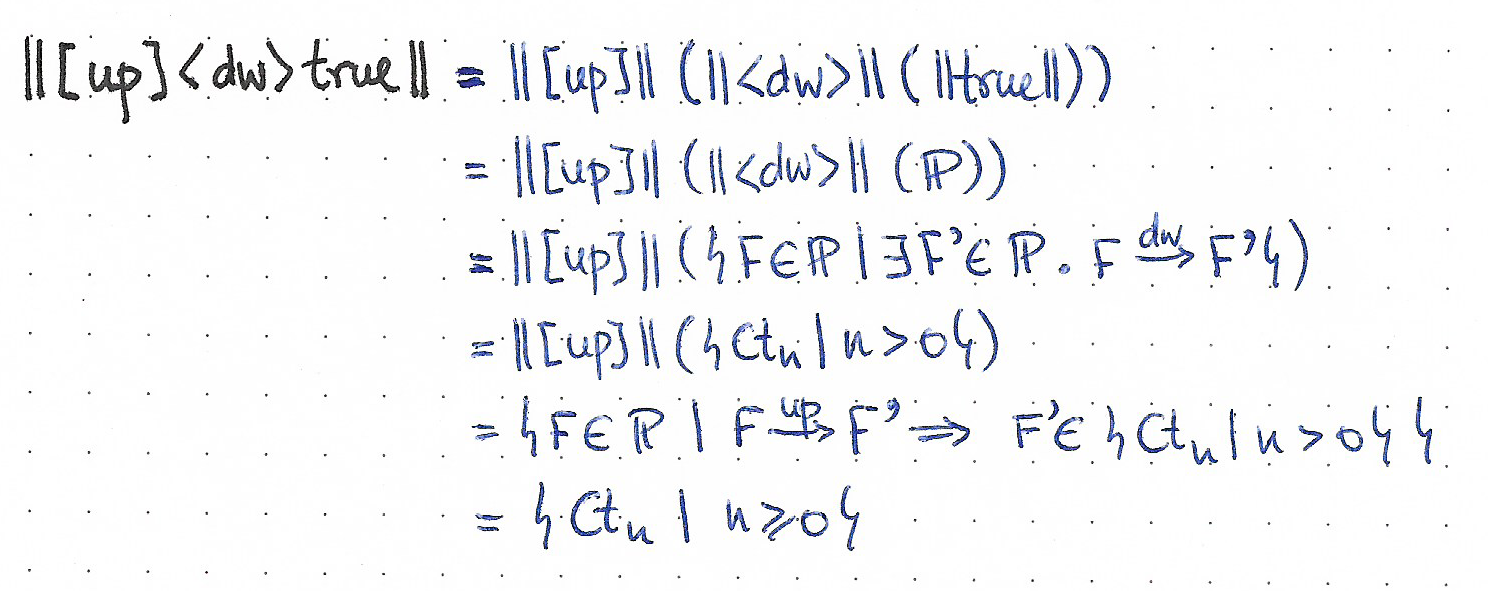 ||[up]<dw>true|| = ||[up]|| (||<dw>|| (||true||))
= ||[up]|| (||<dw>|| (ℙ))
= ||[up]|| ({F∈ℙ | ∃F'∈ℙ. F –dw→ F'})
= ||[up]|| ({Ctₙ | n>0})
= {F∈ℙ | F –up→ F' ⇒ F'∈{Ctₙ | n>0}}
= {Ctₙ | n⩾0}